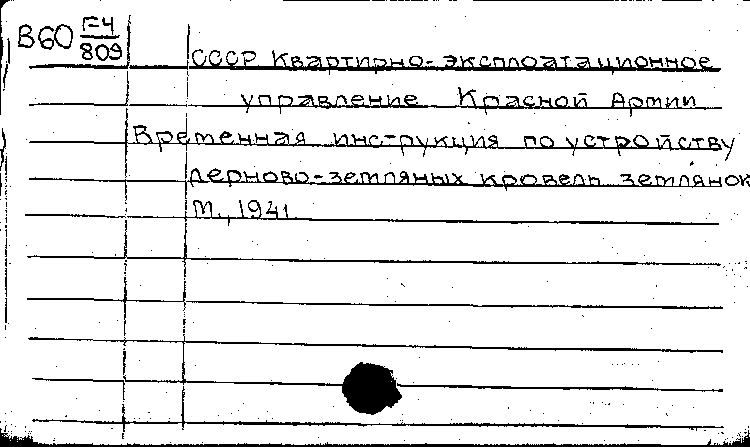 В60 Г-4/809
СССР Квартирно-эксплоатационное
управление Красной Армии
Временная инструкция по устройству
дерново-земляных кровель землянок
М., 1941.